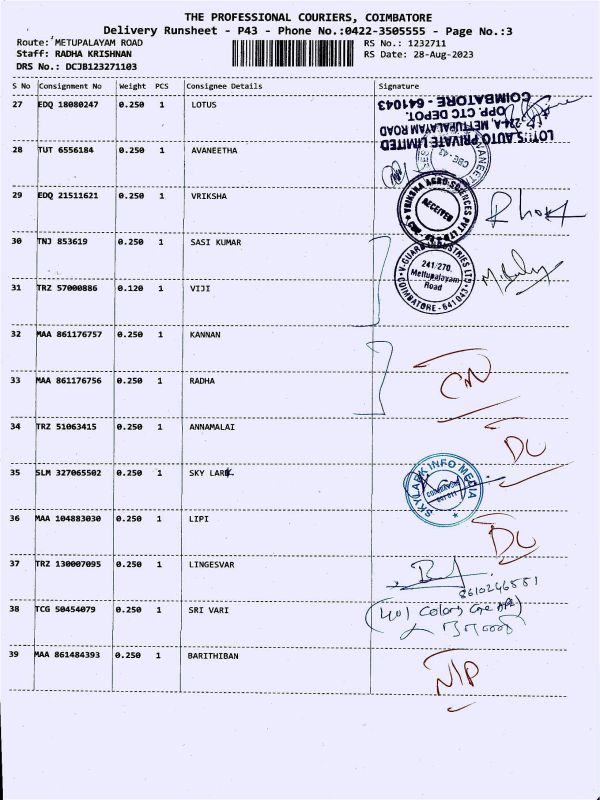 THE PROFESSIONAL COURIERS, COIMBATORE
Delivery Runsheet - P43 - Phone No.:0422-3505555 - Page No.:3
Route: METUPALAYAM ROAD RS No.: 1232711
Staff: RADHA KRISHNAN RS Date: 28-Aug-2023
DRS No.: DCJB123271103
S No Consignment No Weight PCS Consignee Details Signature
27 EDQ 18080247 0.250 1 LOTUS
COIMBATORE - 641043
OPP. CTC DEPOT.
234-A, METTUPALAYAM ROAD
LOTUS AUTO PRIVATE LIMITED
28 TUT 6556184 0.250 1 AVANEETHA
CBE - 43
29 EDQ 21511621 0.250 1 VRIKSHA
VRIKSHA AGRO SCIENCES PVT LTD
RECEIVED
30 TNJ 853619 0.250 1 SASI KUMAR
V-GUARD INDUSTRIES LTD
241/270,
Mettupalayam
Road
COIMBATORE - 641 043
31 TRZ 57000886 0.120 1 VIJI
32 MAA 861176757 0.250 1 KANNAN
33 MAA 861176756 0.250 1 RADHA
34 TRZ 51063415 0.250 1 ANNAMALAI
DL
35 SLM 327065502 0.250 1 SKY LARK
SKYLARK INFO MEDIA
COIMBATORE
641 011
36 MAA 104883030 0.250 1 LIPI
DL
37 TRZ 130007095 0.250 1 LINGESVAR
8610246551
38 TCG 50454079 0.250 1 SRI VARI
401 Colors
39 MAA 861484393 0.250 1 BARITHIBAN
NIP